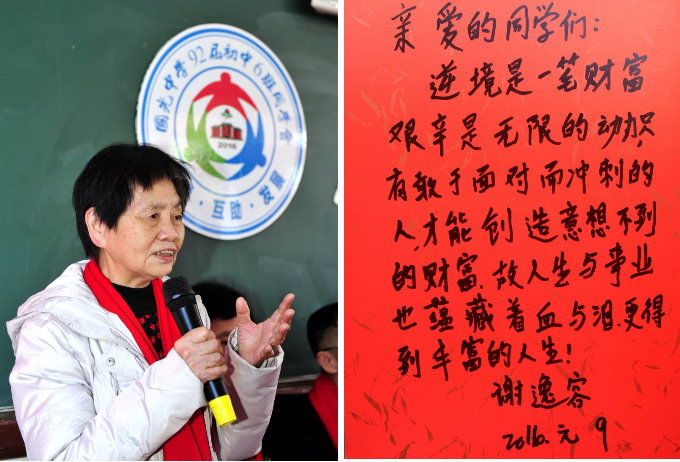 國光中学92届初中6班同学会
2016
·互助·发展
亲爱的同学们：
逆境是一笔财富
艰辛是无限的动识,
有敢于面对而冲刺的
人,才能创造意想不到
的财富、故人生与事业
也蕴藏着血与泪、更得
到丰富的人生！
谢逸容
2016.元 9